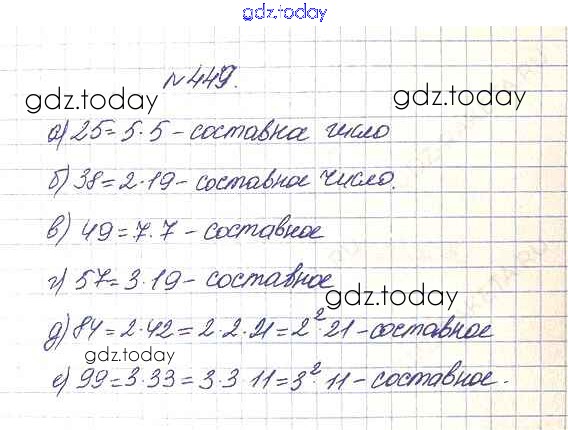 gdz.today
№449.
gdz.today gdz.today
а) 25 = 5·5 - составное число
б) 38 = 2·19 - составное число.
в) 49 = 7·7 - составное
г) 57 = 3·19 - составное
gdz.today
д) 84 = 2·42 = 2·2·21 = 2²·21 - составное
gdz.today
е) 99 = 3·33 = 3·3·11 = 3²·11 - составное.